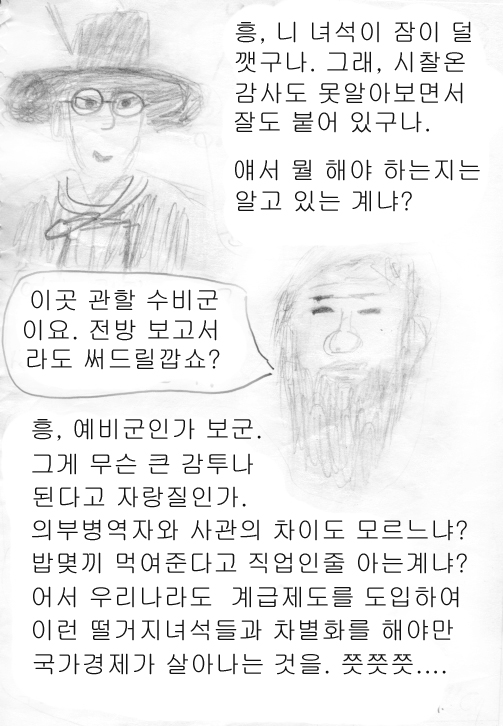 흥, 니 녀석이 잠이 덜
깻구나. 그래, 시찰온
감사도 못알아보면서
잘도 붙어 있구나.
얘서 뭘 해야 하는지는
알고 있는 계냐?
이곳 관할 수비군
이요. 전방 보고서
라도 써드릴깝쇼?
흥, 예비군인가 보군.
그게 무슨 큰 감투나
된다고 자랑질인가.
의부병역자와 사관의 차이도 모르느냐?
밥몇끼 먹여준다고 직업인줄 아는계냐?
어서 우리나라도 계급제도를 도입하여
이런 떨거지녀석들과 차별화를 해야만
국가경제가 살아나는 것을. 쯧쯧쯧....